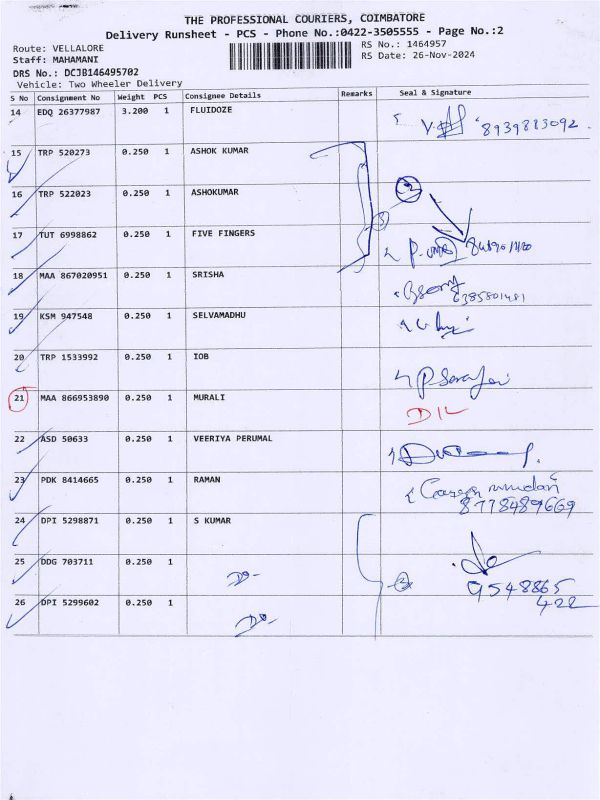 THE PROFESSIONAL COURIERS, COIMBATORE
Delivery Runsheet - PCS - Phone No.:0422-3505555 - Page No.:2
Route: VELLALORE RS No.: 1464957
Staff: MAHAMANI RS Date: 26-Nov-2024
DRS No.: DCJB146495702
Vehicle: Two Wheeler Delivery
S No Consignment No Weight PCS Consignee Details Remarks Seal & Signature
14 EDQ 26377987 3.200 1 FLUIDOZE
8939883092
15 TRP 520273 0.250 1 ASHOK KUMAR
16 TRP 522023 0.250 1 ASHOKUMAR
17 TUT 6998862 0.250 1 FIVE FINGERS
18 MAA 867020951 0.250 1 SRISHA
6385801481
19 KSM 947548 0.250 1 SELVAMADHU
20 TRP 1533992 0.250 1 IOB
21 MAA 866953890 0.250 1 MURALI
D/L
22 ASD 50633 0.250 1 VEERIYA PERUMAL
23 PDK 8414665 0.250 1 RAMAN
8778489669
24 DPI 5298871 0.250 1 S KUMAR
25 DDG 703711 0.250 1 Do-
9548865
422
26 DPI 5299602 0.250 1 Do-